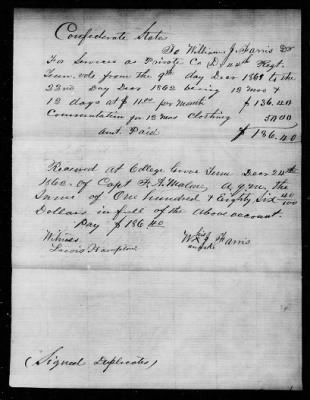 Confederate State
To William J. Harris Dr
For Services as Private Co D 20th Regt
Tenn. vols from the 9th day Decr 1861 to the
22nd Day Decr 1862 being 12 mos &
12 days at $11.00 per month $136.40
Commutation for 12 mos Clothing 50.00
amt. Paid $186.40
Received at College Grove Tenn Decr 24th
1862 of Capt F. A. A.Q.M. the
Sum of One hundred & Eighty Six 40/100
Dollars in full of the above account.
Pay $186.40
Witness
Lewis Hampton
his
Wm X J Harris
mark
(Signed Duplicates)